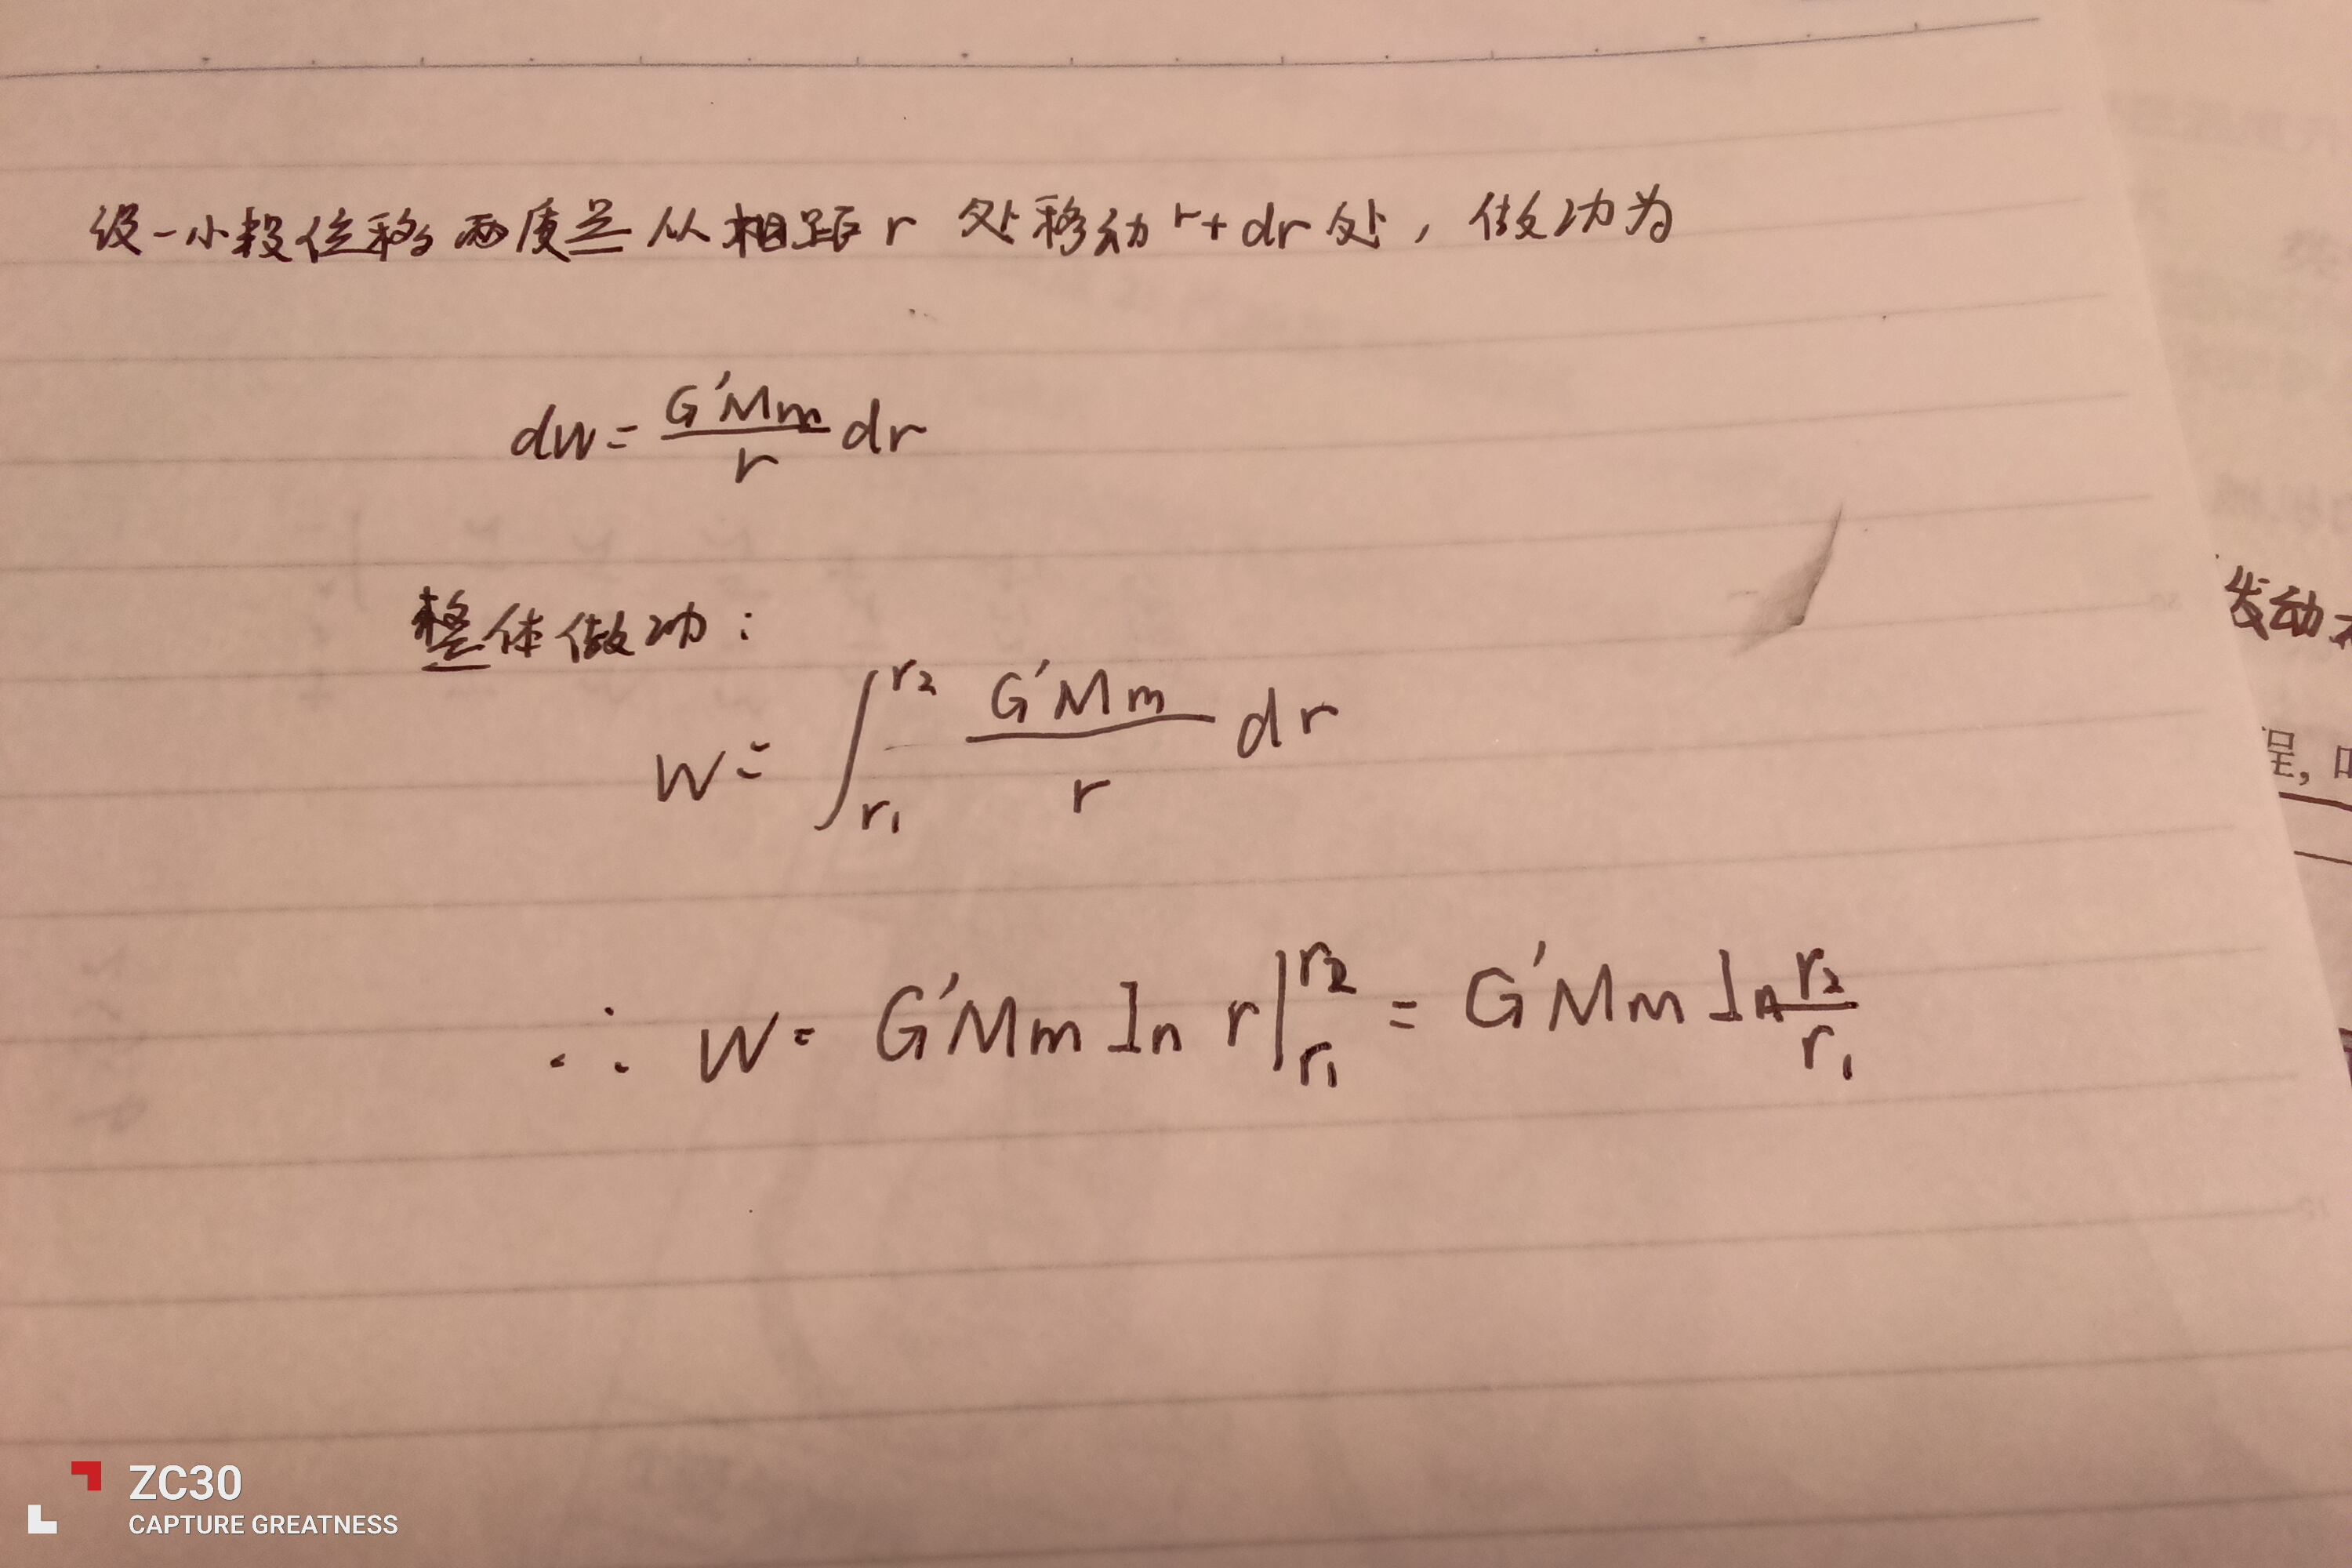 设一小段位移两质量从相距 r 处移动 r+dr 处，做功为
dW = G'Mm/r dr
整体做功：
W = ∫_{r₁}^{r₂} G'Mm/r dr
∴ W = G'Mm ln r |_{r₁}^{r₂} = G'Mm ln r₂/r₁
发动
程,
ZC30
CAPTURE GREATNESS